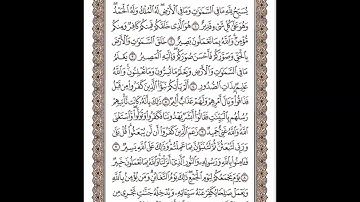 يُسَبِّحُ لِلَّهِ مَا فِي ٱلسَّمَٰوَٰتِ وَمَا فِي ٱلۡأَرۡضِۖ لَهُ ٱلۡمُلۡكُ وَلَهُ ٱلۡحَمۡدُۖ
وَهُوَ عَلَىٰ كُلِّ شَيۡءٖ قَدِيرٌ ١ هُوَ ٱلَّذِي خَلَقَكُمۡ فَمِنكُمۡ كَافِرٞ وَمِنكُم
مُّؤۡمِنٞۚ وَٱللَّهُ بِمَا تَعۡمَلُونَ بَصِيرٌ ٢ خَلَقَ ٱلسَّمَٰوَٰتِ وَٱلۡأَرۡضَ
بِٱلۡحَقِّ وَصَوَّرَكُمۡ فَأَحۡسَنَ صُوَرَكُمۡۖ وَإِلَيۡهِ ٱلۡمَصِيرُ ٣ يَعۡلَمُ
مَا فِي ٱلسَّمَٰوَٰتِ وَٱلۡأَرۡضِ وَيَعۡلَمُ مَا تُسِرُّونَ وَمَا تُعۡلِنُونَۚ وَٱللَّهُ
عَلِيمُۢ بِذَاتِ ٱلصُّدُورِ ٤ أَلَمۡ يَأۡتِكُمۡ نَبَؤُاْ ٱلَّذِينَ كَفَرُواْ مِن قَبۡلُ
فَذَاقُواْ وَبَالَ أَمۡرِهِمۡ وَلَهُمۡ عَذَابٌ أَلِيمٞ ٥ ذَٰلِكَ بِأَنَّهُۥ كَانَت تَّأۡتِيهِمۡ
رُسُلُهُم بِٱلۡبَيِّنَٰتِ فَقَالُوٓاْ أَبَشَرٞ يَهۡدُونَنَا فَكَفَرُواْ وَتَوَلَّواْۖ وَّٱسۡتَغۡنَى
ٱللَّهُۚ وَٱللَّهُ غَنِيٌّ حَمِيدٞ ٦ زَعَمَ ٱلَّذِينَ كَفَرُوٓاْ أَن لَّن يُبۡعَثُواْۚ قُلۡ بَلَىٰ
وَرَبِّي لَتُبۡعَثُنَّ ثُمَّ لَتُنَبَّؤُنَّ بِمَا عَمِلۡتُمۡۚ وَذَٰلِكَ عَلَى ٱللَّهِ يَسِيرٞ ٧
فَـَٔامِنُواْ بِٱللَّهِ وَرَسُولِهِۦ وَٱلنُّورِ ٱلَّذِيٓ أَنزَلۡنَاۚ وَٱللَّهُ بِمَا تَعۡمَلُونَ خَبِيرٞ
٨ يَوۡمَ يَجۡمَعُكُمۡ لِيَوۡمِ ٱلۡجَمۡعِۖ ذَٰلِكَ يَوۡمُ ٱلتَّغَابُنِۗ وَمَن يُؤۡمِنۢ بِٱللَّهِ
وَيَعۡمَلۡ صَٰلِحٗا يُكَفِّرۡ عَنۡهُ سَيِّـَٔاتِهِۦ وَيُدۡخِلۡهُ جَنَّٰتٖ تَجۡرِي مِن